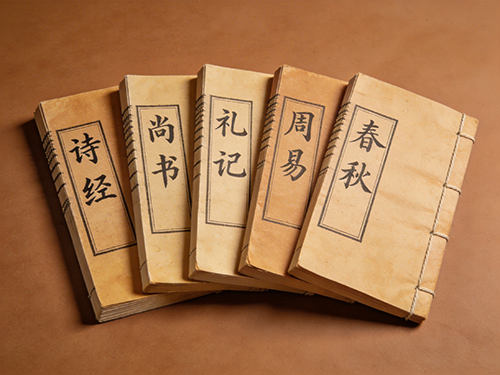 诗经
尚书
礼记
周易
春秋